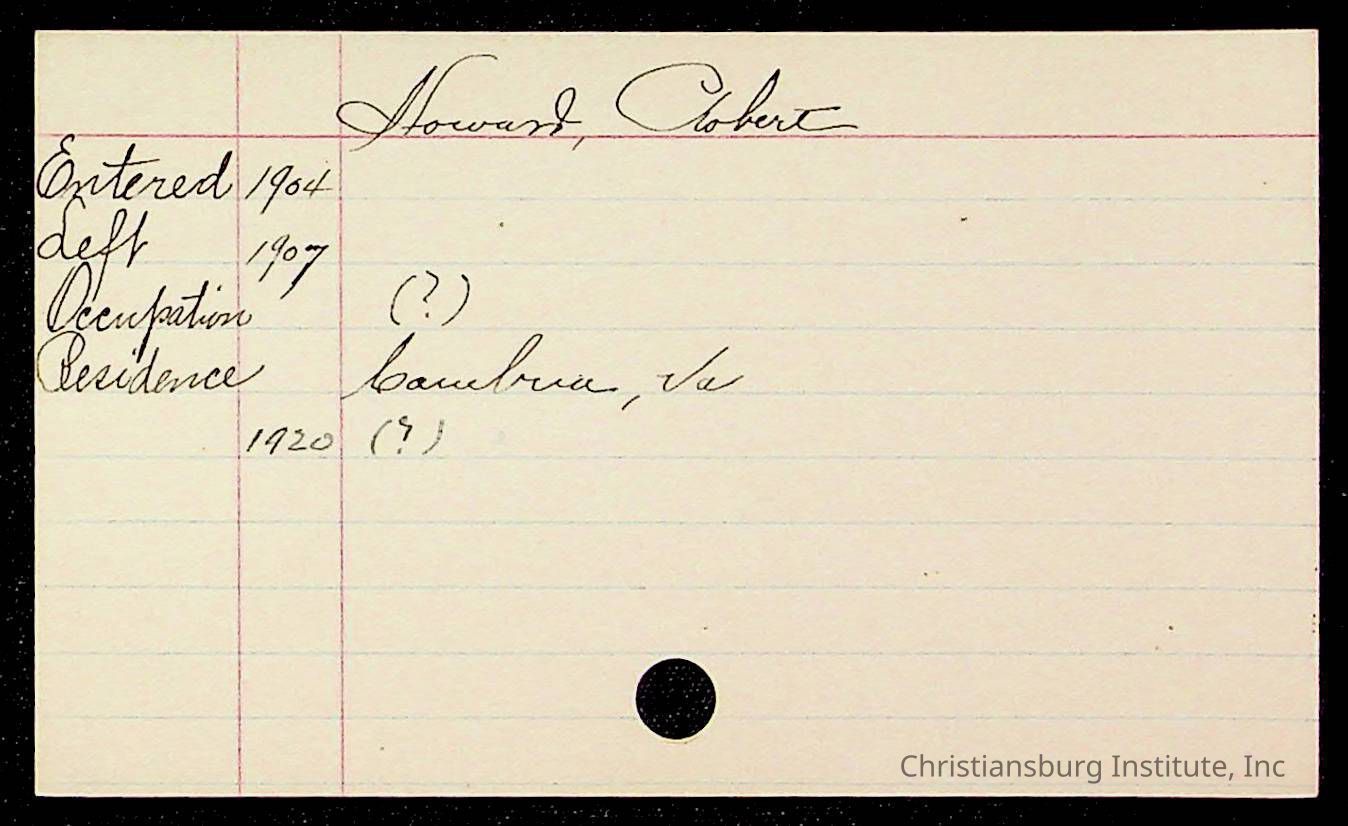 Howard, Robert
Entered 1904
Left 1907
Occupation (?)
Residence Cambria, Va
1920 (?)
Christiansburg Institute, Inc